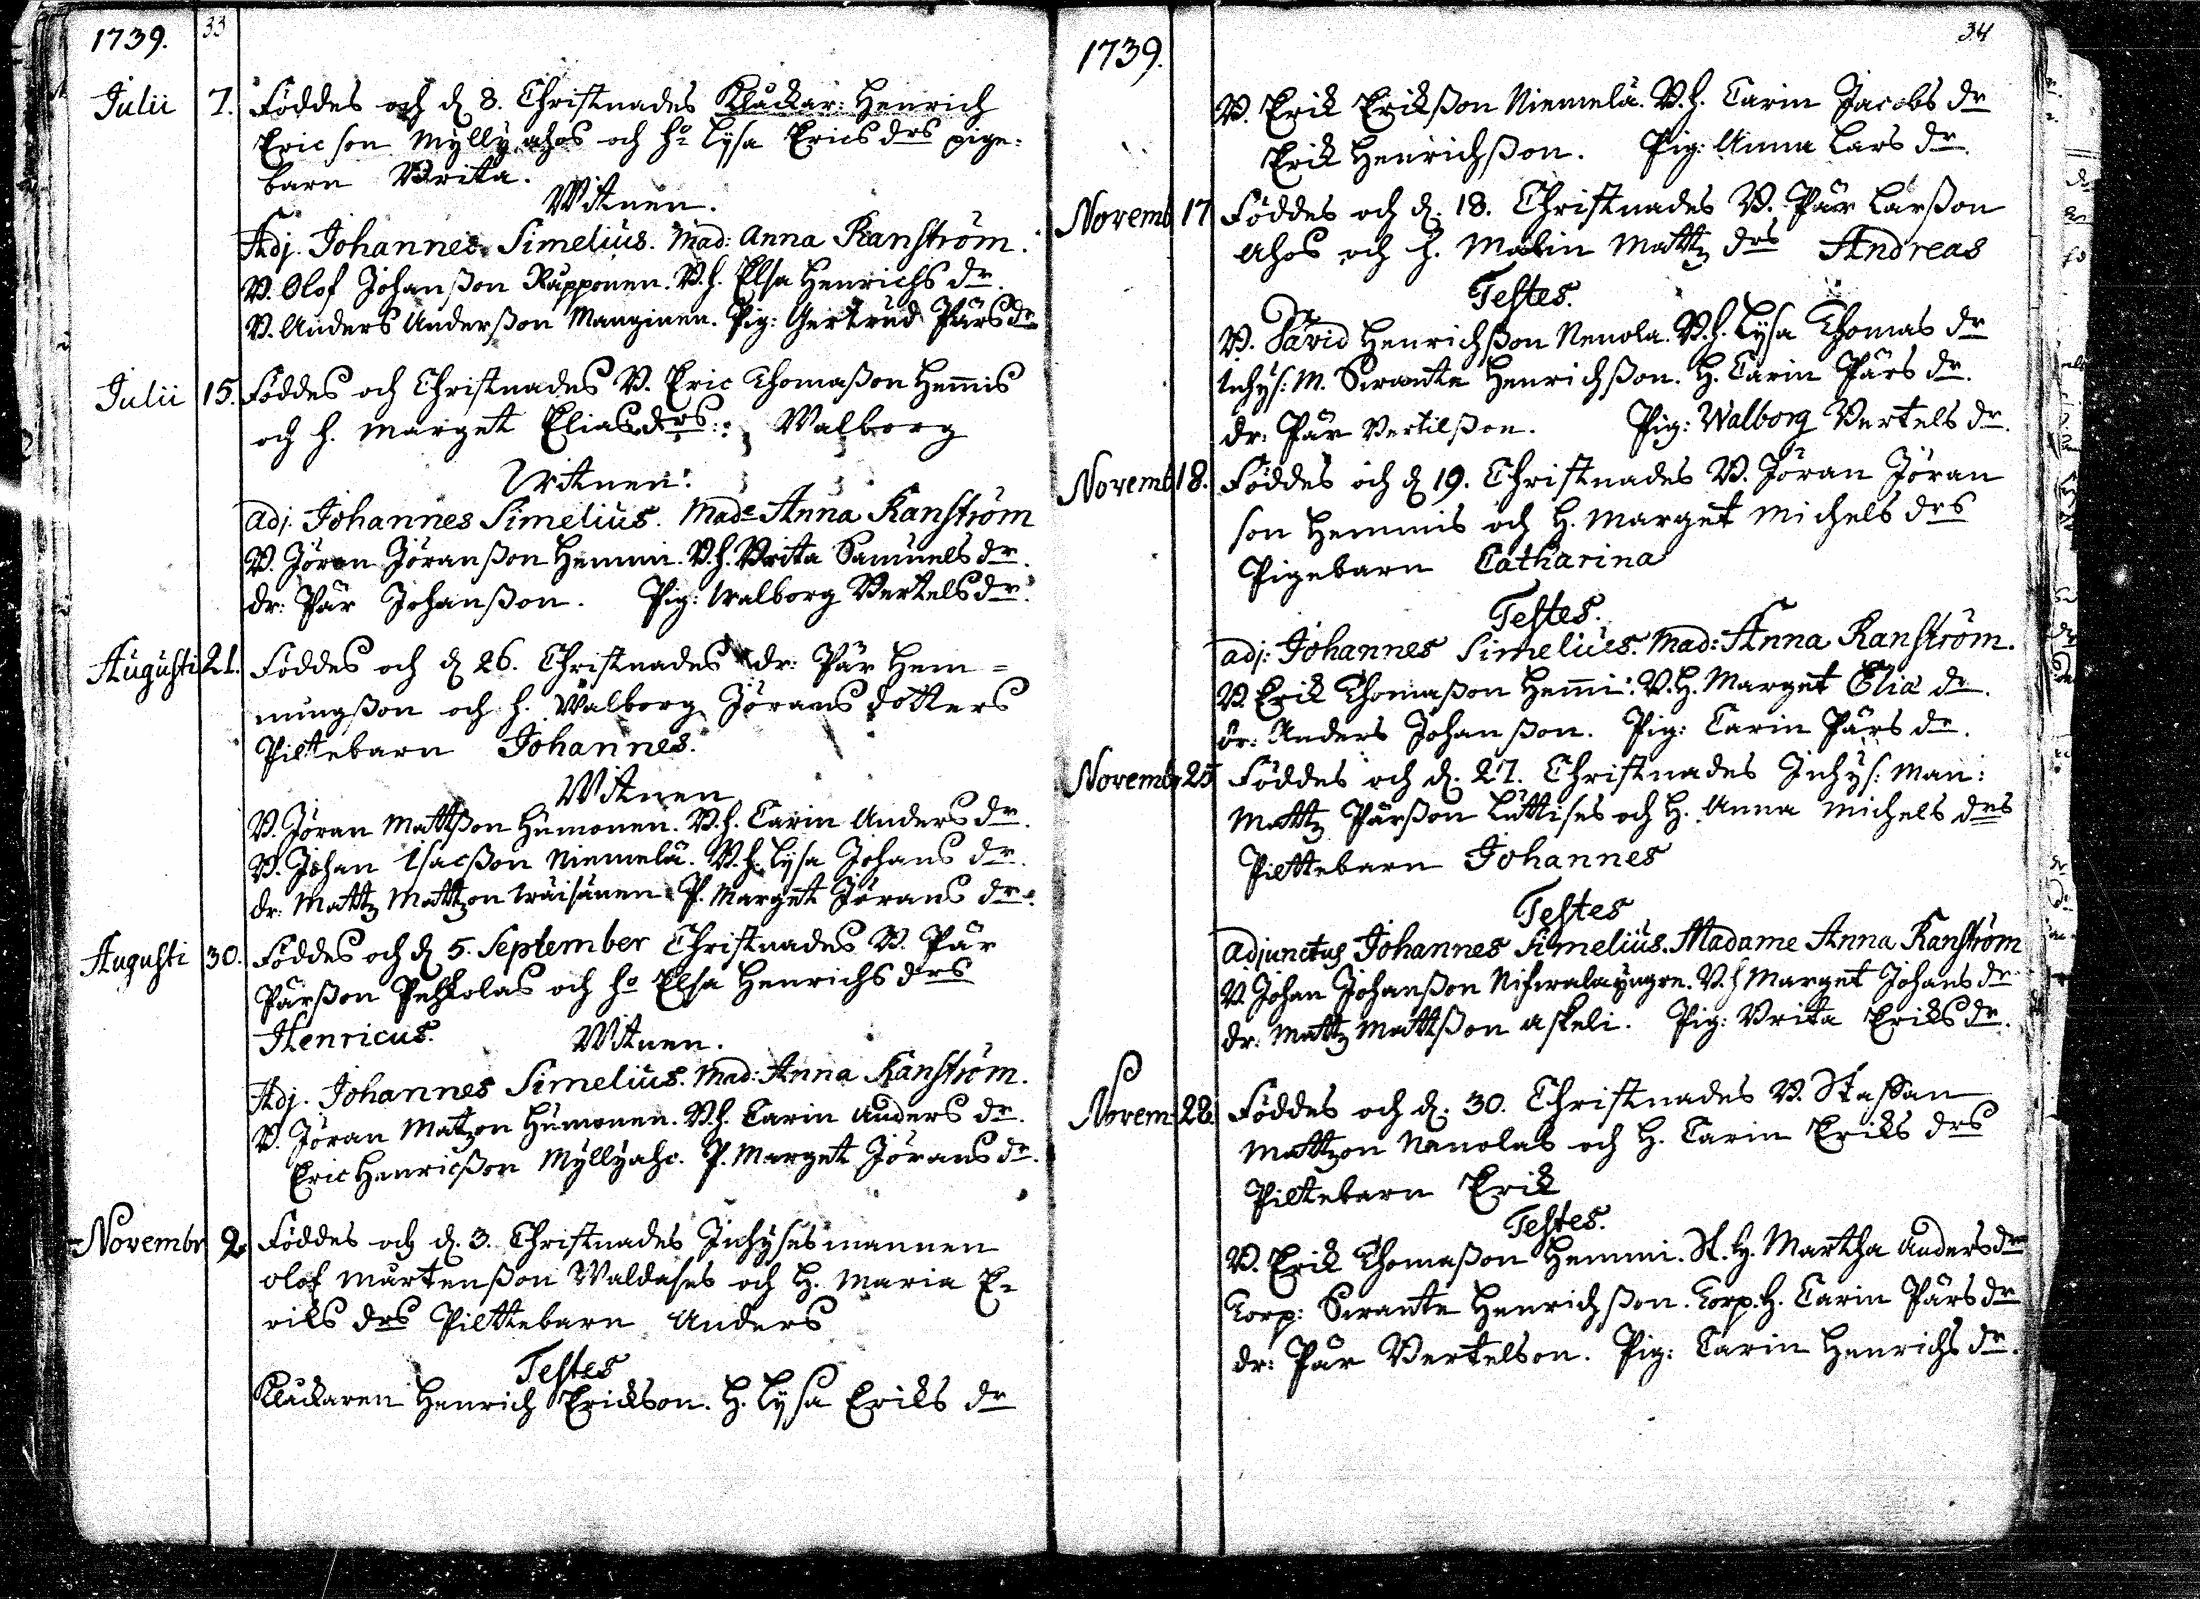 1739. 33
Julii 7. Föddes och d. 8. Christnades Klåckar: Henrich
Ericson Myllyahos och ho Lysa Erics drs pige-
barn Brita.
Witnen.
Adj. Johannes Simelius. Mad: Anna Kanström.
B. Olof Johanßon Rapponen. B.h. Elsa Henrichs dr.
B. Anders Anderßon Manginen. Pig: Gertrud Pärs dr
Julii 15. Föddes och Christnades B. Eric Thomaßon Hemmis
och h. Marget Elias drs: Walborg
Witnen:
Adj. Johannes Simelius. Made Anna Kanström
B. Jöran Jöranßon Hemmi. B.h. Brita Samuels dr.
dr: Pär Johanßon. Pig: Walborg Bertels dr.
Augusti 21. Föddes och d 26. Christnades dr: Pär Hem=
ningßon och h. Walborg Jörans dotters
Piltebarn Johannes.
Witnen
B. Jöran Mattßon Humonen. B.h. Carin Anders dr.
B. Johan Isacßon Niemelä. B.h. Lysa Johans dr.
dr. Mattz Mattzon Wäisänen P. Marget Jörans dr.
Augusti 30. Föddes och d 5. September Christnades B. Pär
Pärßon Pehkolas och ho Elsa Henrichs drs
Henricus.
Witnen.
Adj. Johannes Simelius. Mad: Anna Kanström.
B. Jöran Matzon Humonen. B.h. Carin Anders dr.
Eric Henricßon Myllyaho. P. Marget Jörans dr.
Novembr 2. Föddes och d. 3. Christnades Inhysesmannen
Olof Mårtenßon Waldases och H. Maria E-
riks drs Piltebarn Anders
Testes
Klåckaren Henrich Erickson. H. Lysa Eriks dr
1739. 34
B. Erik Erikßon Niemelä. B.h. Carin Jacobs dr
Erik Henrichßon. Pig: Anna Lars dr.
Novemb 17 Föddes och d. 18. Christnades B. Pär Larßon
Ahos och h. Malin Mattz drs Andreas
Testes.
B. David Henrichßon Nenola. B.h. Lysa Thomas dr
Inhys: M. Swante Henrichßon. H. Carin Pärs dr.
dr: Pär Bertilßon. Pig: Walborg Bertels dr.
Novemb 18. Föddes och d 19. Christnades B. Jöran Jöran
son Hemmis och H. Marget Michels drs
Pigebarn Catharina
Testes.
adj: Johannes Simelius. Mad: Anna Kanström.
B Erik Thomaßon Hemmi. B.H. Marget Eliæ dr.
dr: Anders Johanßon. Pig: Carin Pärs dr.
Novemb 25 Föddes och d. 27. Christnades Inhys: Man:
Mattz Pärßon Luttises och H. Anna Michels drs
Piltebarn Johannes
Testes
Adjunctus Johannes Simelius. Madame Anna Kanström
B. Johan Johanßon. B.h Marget Johans dr
dr: Mattz Mattßon Askeli. Pig: Brita Eriks dr.
Novem 28. Föddes och d. 30. Christnades B. Staffan
Mattzon Nenolas och H. Carin Eriks drs
Piltebarn Erik
Testes.
B. Erik Thomaßon Hemmi. H. Martha Anders dr
Corp: Swante Henrichßon. Corp. H. Carin Pärs dr
dr: Pär Bertelson. Pig: Carin Henrichs dr.